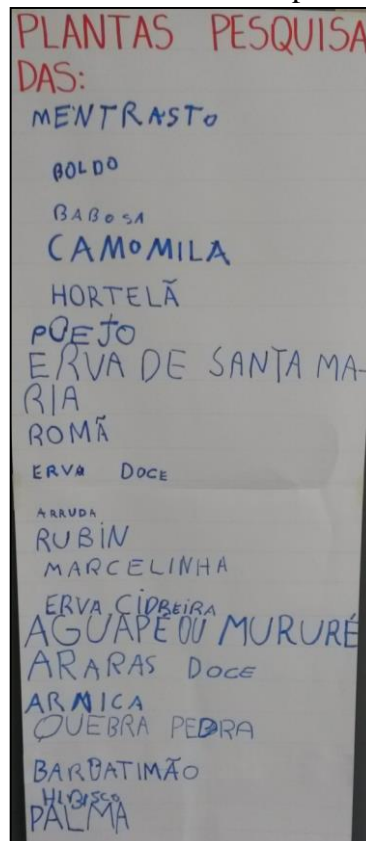 PLANTAS PESQUISA
DAS:
MENTRASTO
BOLDO
BABOSA
CAMOMILA
HORTELÃ
POEJO
ERVA DE SANTA MA-
RIA
ROMÃ
ERVA DOCE
ARRUDA
RUBIN
MARCELINHA
ERVA CIDREIRA
AGUAPÉ OU MURURÉ
ARARAS DOCE
ARNICA
QUEBRA PEDRA
BARBATIMÃO
HIBISCO
PALMA